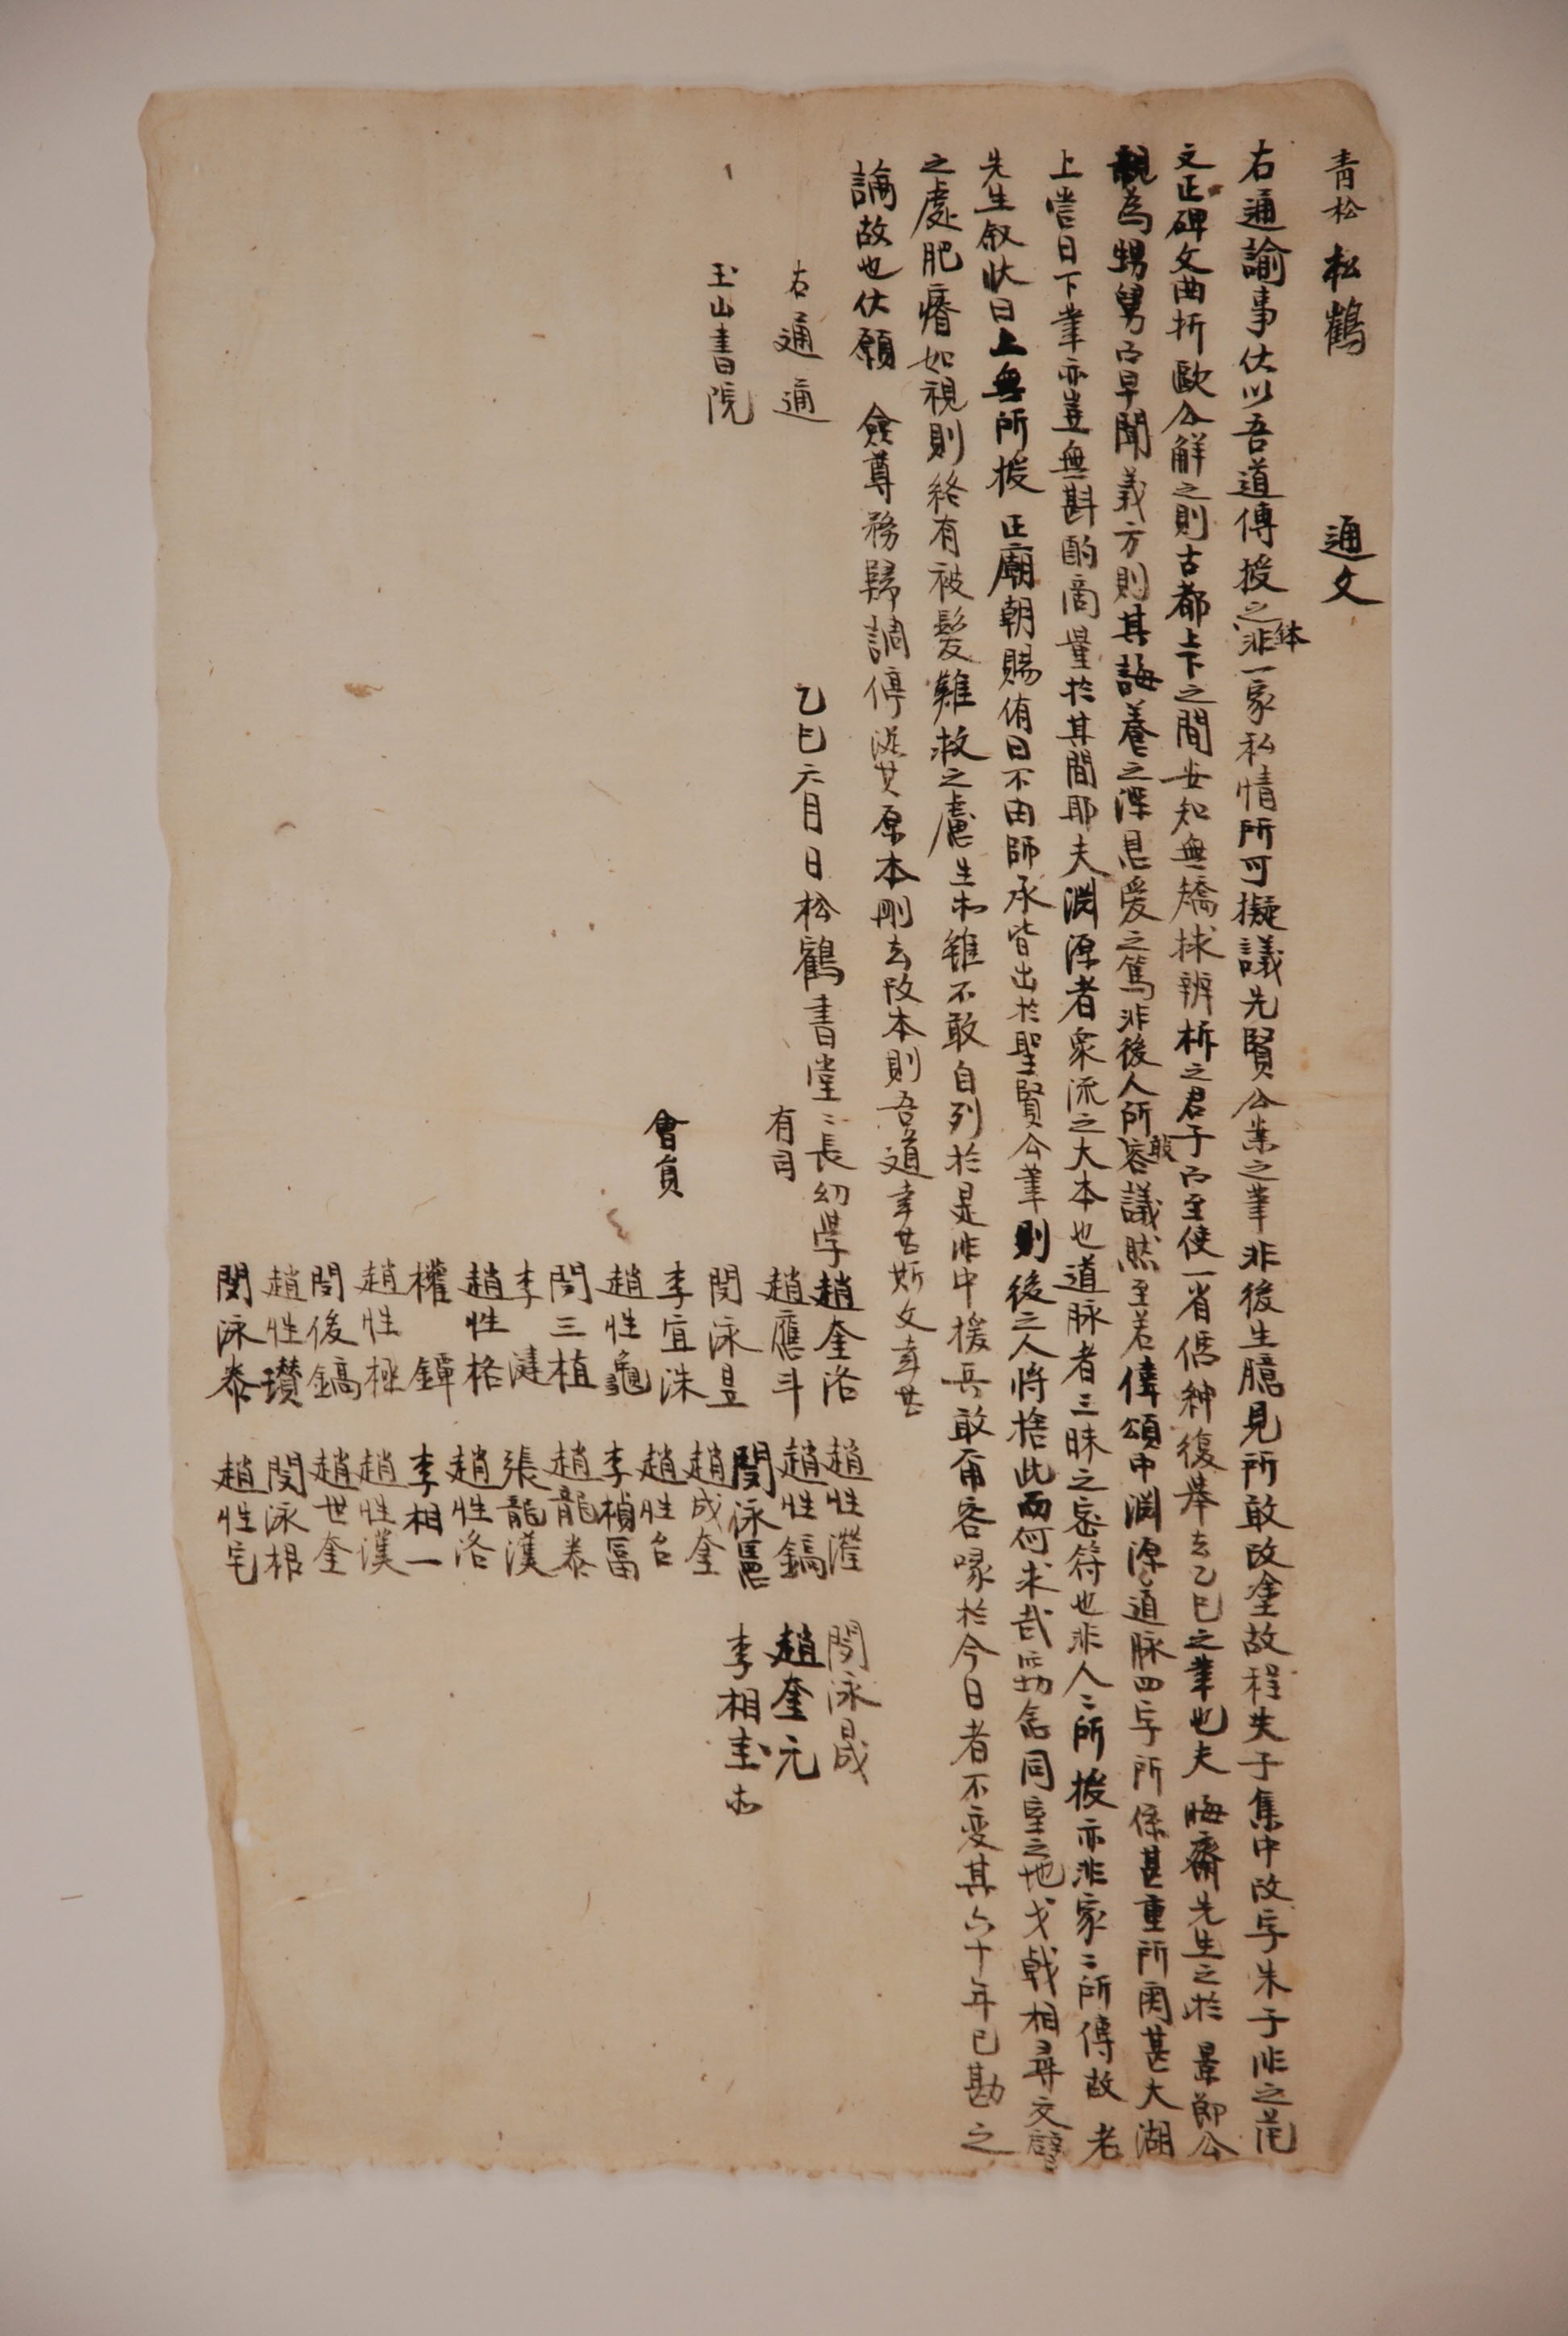 青松 松鶴 通文
右通諭事伏以吾道傳授之鉢非一家私情所可擬議先賢公案之筆非後生臆見所敢改塗故程夫子集中改字朱子非之范
文正碑文曲折歐公辭之則古都上下之間安知無矯捄辨析之君子而至使一省儒紳復擧去乙巳之筆也夫 晦齋先生之於 景節公
親爲甥舅而早聞義方則其誨養之深恩愛之篤非後人所敢容議然至若偉頌中淵源道脉四字所係甚重所関甚大湖
上當日下筆亦豈無斟酌商量於其間耶夫淵源者衆流之大本也道脉者三昧之密符也非人〻所授亦非家〻所傳故 老
先生叙狀曰上無所援 正廟朝賜侑曰不由師承皆出於聖賢公筆則後之人將捨此而何求哉 同室之地戈戟相尋文壁
之處肥瘠如視則終有被髮難救之慮生等雖不敢自列於是非中援兵敢爾容喙於今日者不變其六十年已勘之
論故也伏願 僉尊務歸調停從其原本刪去改本則吾道幸甚斯文幸甚
右通通
玉山書院
乙巳六月 日松鶴書堂〻長幼學趙奎洛 趙性瀅 閔泳晟
有司 趙應斗 趙性鎬 趙奎元
閔泳昱 閔泳憲 李相圭 等
會員 李宜洙 趙成奎
趙性龜 趙性台
閔三植 李楨富
李漣 趙龍泰
趙性格 張龍漢
權鐔 趙性洛
趙性極 李相一
閔後鎬 趙性漢
趙性瓚 趙世奎
閔泳泰 閔泳根
趙性宅